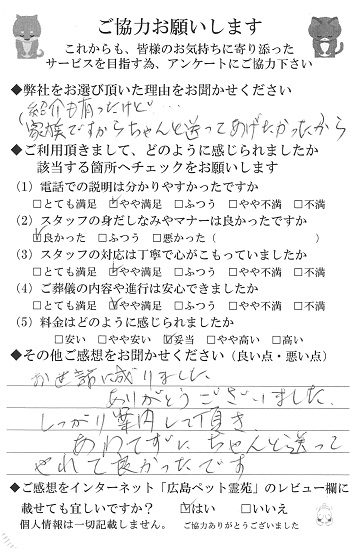 ご協力お願いします
これからも、皆様のお気持ちに寄り添った
サービスを目指す為、アンケートにご協力下さい
◆弊社をお選び頂いた理由をお聞かせください
紹介も有ったけど…
家族ですからちゃんと送ってあげたかったから
◆ご利用頂きまして、どのように感じられましたか
該当する箇所へチェックをお願いします
(1) 電話での説明は分かりやすかったですか
□とても満足 ☑やや満足 □ふつう □やや不満 □不満
(2) スタッフの身だしなみやマナーは良かったですか
☑良かった □ふつう □悪かった( )
(3) スタッフの対応は丁寧で心がこもっていましたか
□とても満足 ☑やや満足 □ふつう □やや不満 □不満
(4) ご葬儀の内容や進行は安心できましたか
□とても満足 ☑やや満足 □ふつう □やや不満 □不満
(5) 料金はどのように感じられましたか
□安い □やや安い ☑妥当 □やや高い □高い
◆その他ご感想をお聞かせください(良い点・悪い点)
お世話に成りました
ありがとうございました。
しっかり案内して頂き、
あわてずに、ちゃんと送って
やれて良かったです
◆ご感想をインターネット「広島ペット霊苑」のレビュー欄に
載せても宜しいですか? ☑はい □いいえ
個人情報は一切記載しません。 ご協力ありがとうございました